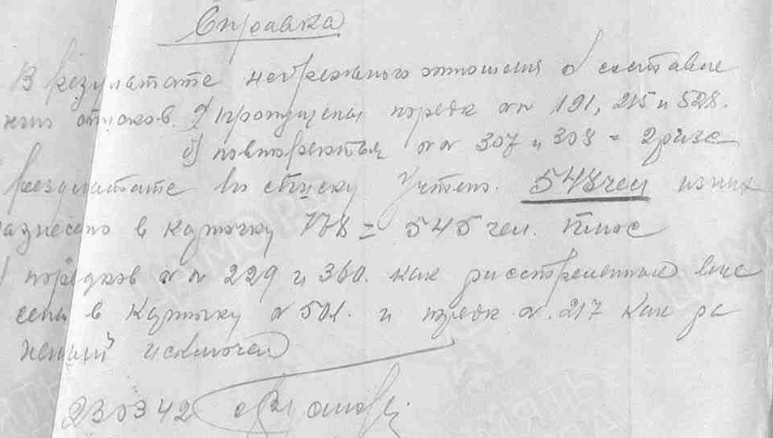 Справка
В результате небрежного отношения в составле
нии списков. а) пропущены порядк №№ 191, 215 и 528.
б) повторяются №№ 307 и 308 = 2 раза
результате по списку учтено. 548 чел из них
разнесено в карточку = 545 чел. плюс
порядков №№ 229 и 360. как расстрелянные вне
сены в карточку № 501. и порядк №. 217 как ра
неный исключен
230342